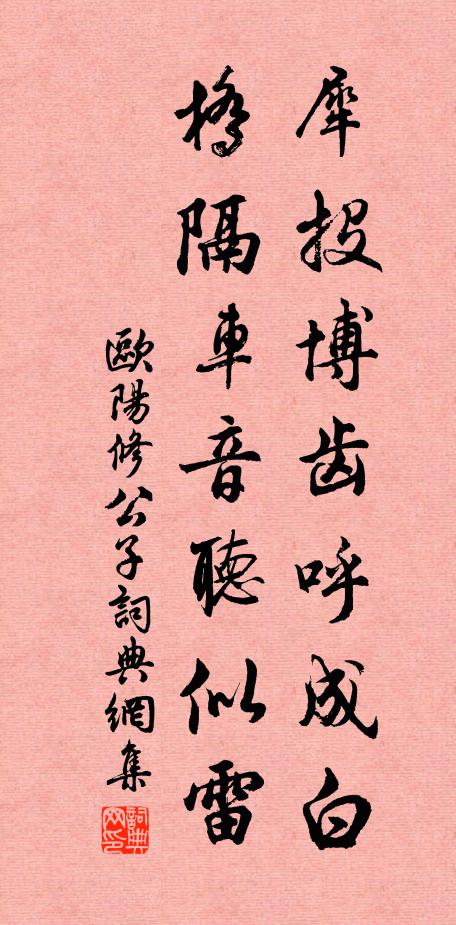 犀投博齿呼成白
橋隔車音聽似雷
歐陽修公子詞典網集
詞典网印